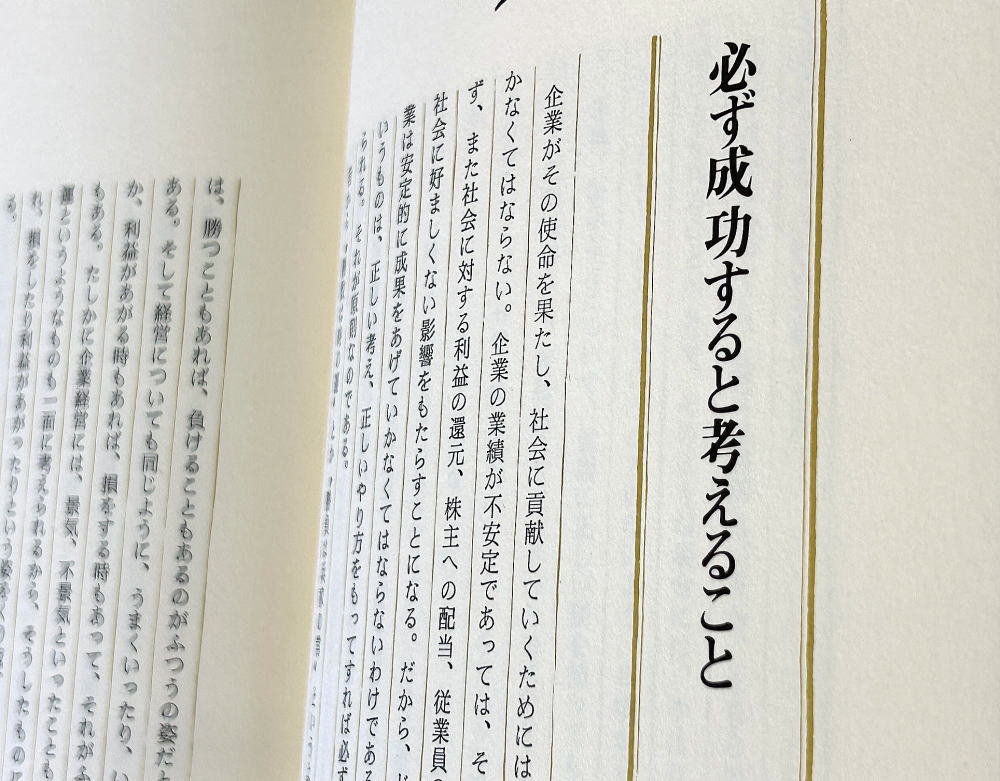 必ず成功すると考えること
企業がその使命を果たし、社会に貢献していくためには
かなくてはならない。企業の業績が不安定であっては、そ
ず、また社会に対する利益の還元、株主への配当、従業員の
社会に好ましくない影響をもたらすことになる。だから、
業は安定的に成果をあげていかなくてはならないわけである
いうものは、正しい考え、正しいやり方をもってすれば必ず
られる。それが原則なのである。
は、勝つこともあれば、負けることもあるのがふつうの姿だ
ある。そして経営についても同じように、うまくいったり、
か、利益があがる時もあれば、損をする時もあって、それがふ
もある。たしかに企業経営には、景気、不景気といったことも
運というようなものも一面に考えられるから、そうしたものに
れ、損をしたり利益があがったりという姿を
る。